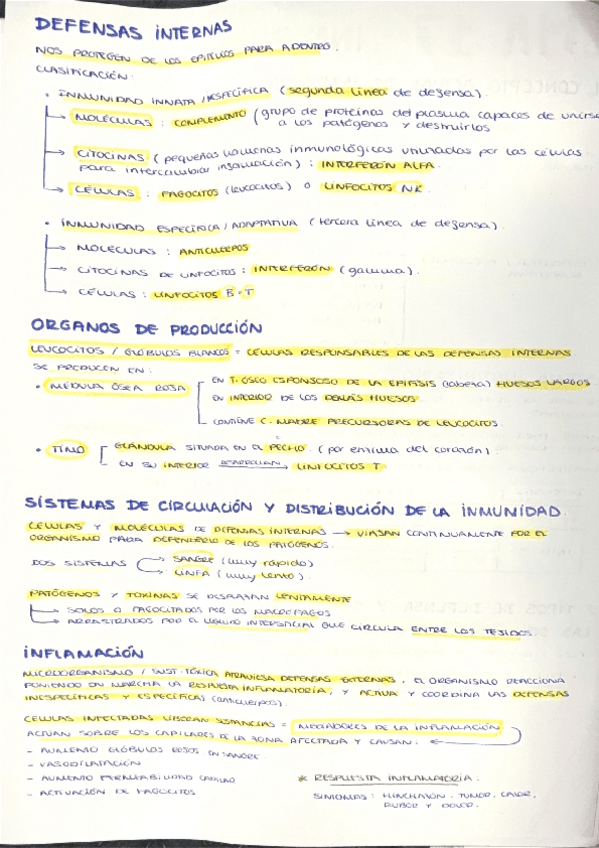 DEFENSAS INTERNAS
NOS PROTEGEN DE LOS EPITELIOS PARA ADENTRO.
CLASIFICACIÓN:
• INMUNIDAD INNATA / INESPECÍFICA (segunda línea de defensa).
→ MOLÉCULAS : COMPLEMENTO (grupo de proteínas del plasma capaces de unirse
a los patógenos y destruirlos
→ CITOCINAS (pequeñas hormonas inmunológicas utilizadas por las células
para intercambiar información) : INTERFERÓN ALFA.
→ CÉLULAS : FAGOCITOS (leucocitos) o LINFOCITOS NK.
• INMUNIDAD ESPECÍFICA / ADAPTATIVA (tercera línea de defensa).
→ MOLÉCULAS : ANTICUERPOS
→ CITOCINAS DE LINFOCITOS : INTERFERÓN (gamma).
→ CÉLULAS : LINFOCITOS B · T
ORGANOS DE PRODUCCIÓN
LEUCOCITOS / GLÓBULOS BLANCOS = CÉLULAS RESPONSABLES DE LAS DEFENSAS INTERNAS
SE PRODUCEN EN :
• MÉDULA ÓSEA ROJA
EN T. ÓSEO ESPONJOSO DE LA EPÍFISIS (cabeza) HUESOS LARGOS
EN INTERIOR DE LOS DEMÁS HUESOS.
CONTIENE C. MADRE PRECURSORAS DE LEUCOCITOS.
• TIMO
GLÁNDULA SITUADA EN EL PECHO. (por encima del corazón).
EN SU INTERIOR DESARROLLAN → LINFOCITOS T
SISTEMAS DE CIRCULACIÓN Y DISTRIBUCIÓN DE LA INMUNIDAD.
CÉLULAS Y MOLÉCULAS DE DEFENSAS INTERNAS → VIAJAN CONTINUAMENTE POR EL
ORGANISMO PARA DEFENDERLO DE LOS PATÓGENOS.
DOS SISTEMAS
→ SANGRE (muy rápido)
→ LINFA (muy lento).
PATÓGENOS Y TOXINAS SE DESPLAZAN LENTAMENTE
→ SOLOS O FAGOCITADOS POR LOS MACRÓFAGOS
→ ARRASTRADOS POR EL LÍQUIDO INTERSTICIAL QUE CIRCULA ENTRE LOS TEJIDOS
INFLAMACIÓN
MICROORGANISMO / SUST. TÓXICA ATRAVIESA DEFENSAS EXTERNAS. EL ORGANISMO REACCIONA
PONIENDO EN MARCHA LA RESPUESTA INFLAMATORIA, Y ACTIVA Y COORDINA LAS DEFENSAS
INESPECÍFICAS Y ESPECÍFICAS (anticuerpos).
CÉLULAS INFECTADAS LIBERAN SUSTANCIAS = MEDIADORES DE LA INFLAMACIÓN
ACTÚAN SOBRE LOS CAPILARES DE LA ZONA AFECTADA Y CAUSAN : ←
- AUMENTO GLÓBULOS ROJOS EN SANGRE.
- VASODILATACIÓN
- AUMENTO PERMEABILIDAD CAPILAR
- ACTIVACIÓN DE FAGOCITOS
* RESPUESTA INFLAMATORIA :
SÍNTOMAS : HINCHAZÓN . TUMOR, CALOR,
RUBOR Y DOLOR.